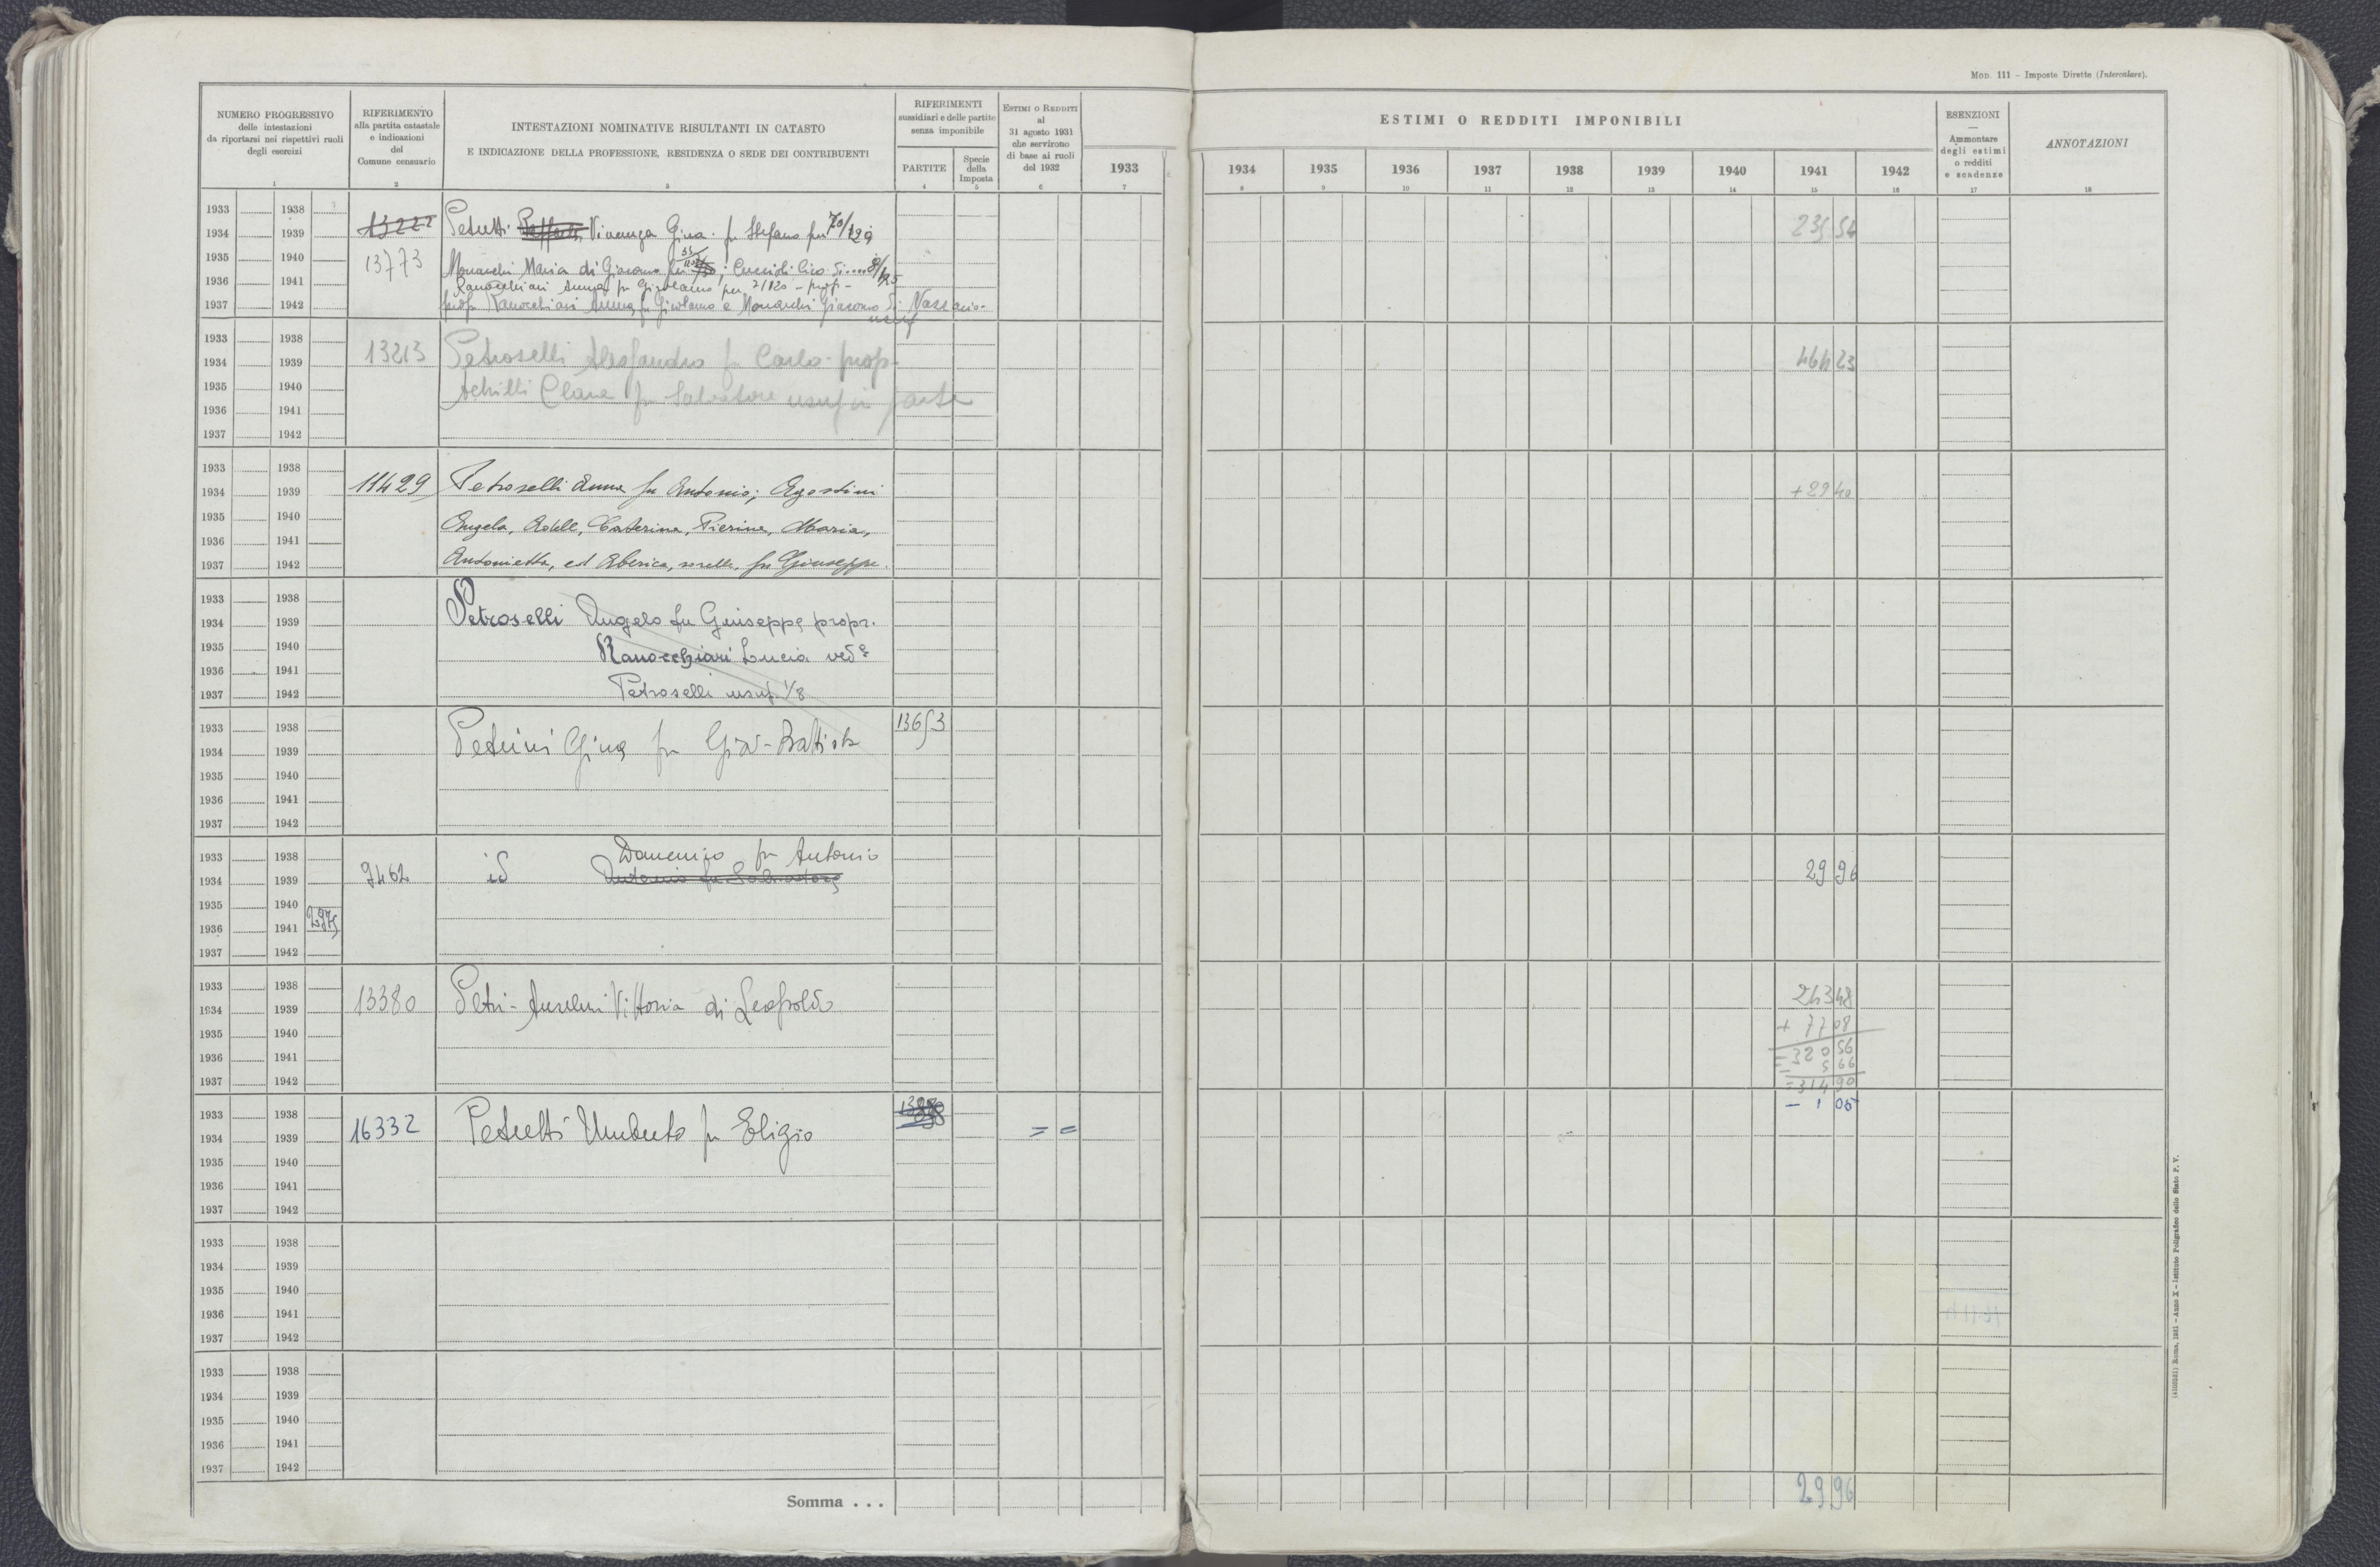 MOD. 111 – Imposte Dirette (Intercalare).
NUMERO PROGRESSIVO
delle intestazioni
da riportarsi nei rispettivi ruoli
degli esercizi
1
RIFERIMENTO
alla partita catastale
e indicazioni
del
Comune censuario
2
INTESTAZIONI NOMINATIVE RISULTANTI IN CATASTO
E INDICAZIONE DELLA PROFESSIONE, RESIDENZA O SEDE DEI CONTRIBUENTI
3
RIFERIMENTI
sussidiari e delle partite
senza imponibile
PARTITE
4
Specie
della
Imposta
5
ESTIMI O REDDITI
al
31 agosto 1931
che servirono
di base ai ruoli
del 1932
6
ESTIMI O REDDITI IMPONIBILI
1933
7
1934
8
1935
9
1936
10
1937
11
1938
12
1939
13
1940
14
1941
15
1942
16
ESENZIONI
—
Ammontare
degli estimi
o redditi
e scadenze
17
ANNOTAZIONI
18
1933 1938
1934 1939
1935 1940
1936 1941
1937 1942
13222
13773
Petretti Vincenza Gina fu Stefano per 70/120
Monarchi Maria di Giacomo per
Ranocchiari Anna fu Girolamo per 2/120 - prop -
Ranocchiari Anna fu Girolamo e Monarchi Giacomo di
usuf
235 54
1933 1938
1934 1939
1935 1940
1936 1941
1937 1942
13213
Petroselli Alessandro fu Carlo - prop.
Achilli Clara fu Salvatore usuf in parte
464 23
1933 1938
1934 1939
1935 1940
1936 1941
1937 1942
11429
Petroselli Anna fu Antonio; Agostini
Angela, Adele, Caterina, Pierina, Maria,
Antonietta, ed Alberica, sorelle, fu Giuseppe.
+ 29 40
1933 1938
1934 1939
1935 1940
1936 1941
1937 1942
Petroselli Angelo fu Giuseppe propr.
Ranocchiari Lucia ved.a
Petroselli usuf. 1/8
1933 1938
1934 1939
1935 1940
1936 1941
1937 1942
Petrini Gina fu Gio-Battista
13653
1933 1938
1934 1939
1935 1940
1936 1941
1937 1942
9462
id Domenico fu Antonio
Antonio fu Salvatore
29 96
1933 1938
1934 1939
1935 1940
1936 1941
1937 1942
13380
Petri-Anselmi Vittoria di Leopoldo
243 48
+ 77 08
= 320 56
5 66
= 314 90
1933 1938
1934 1939
1935 1940
1936 1941
1937 1942
16332
Petretti Umberto fu Eligio
= =
- 1 05
1933 1938
1934 1939
1935 1940
1936 1941
1937 1942
1933 1938
1934 1939
1935 1940
1936 1941
1937 1942
Somma . . .
29 96
Roma, 1931 – Anno X – Istituto Poligrafico dello Stato P. V.